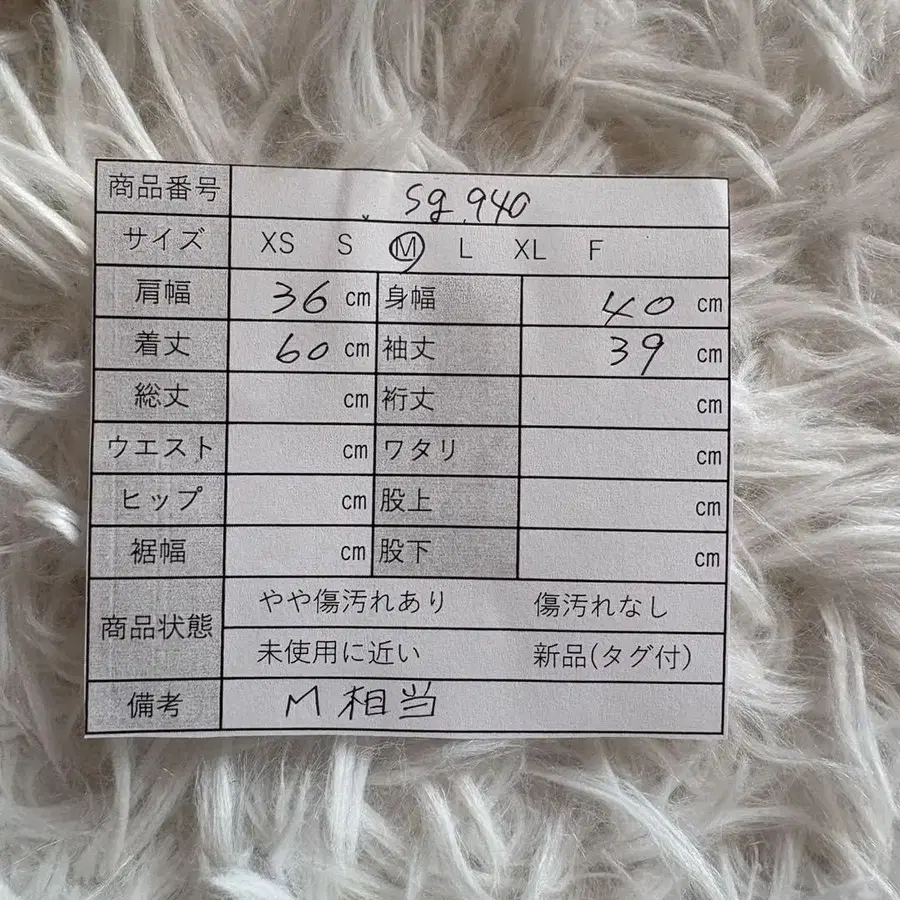 商品番号 sg.940
サイズ XS S M L XL F
肩幅 36 cm 身幅 40 cm
着丈 60 cm 袖丈 39 cm
総丈 cm 裄丈 cm
ウエスト cm ワタリ cm
ヒップ cm 股上 cm
裾幅 cm 股下 cm
商品状態 やや傷汚れあり 傷汚れなし
未使用に近い 新品(タグ付)
備考 M相当